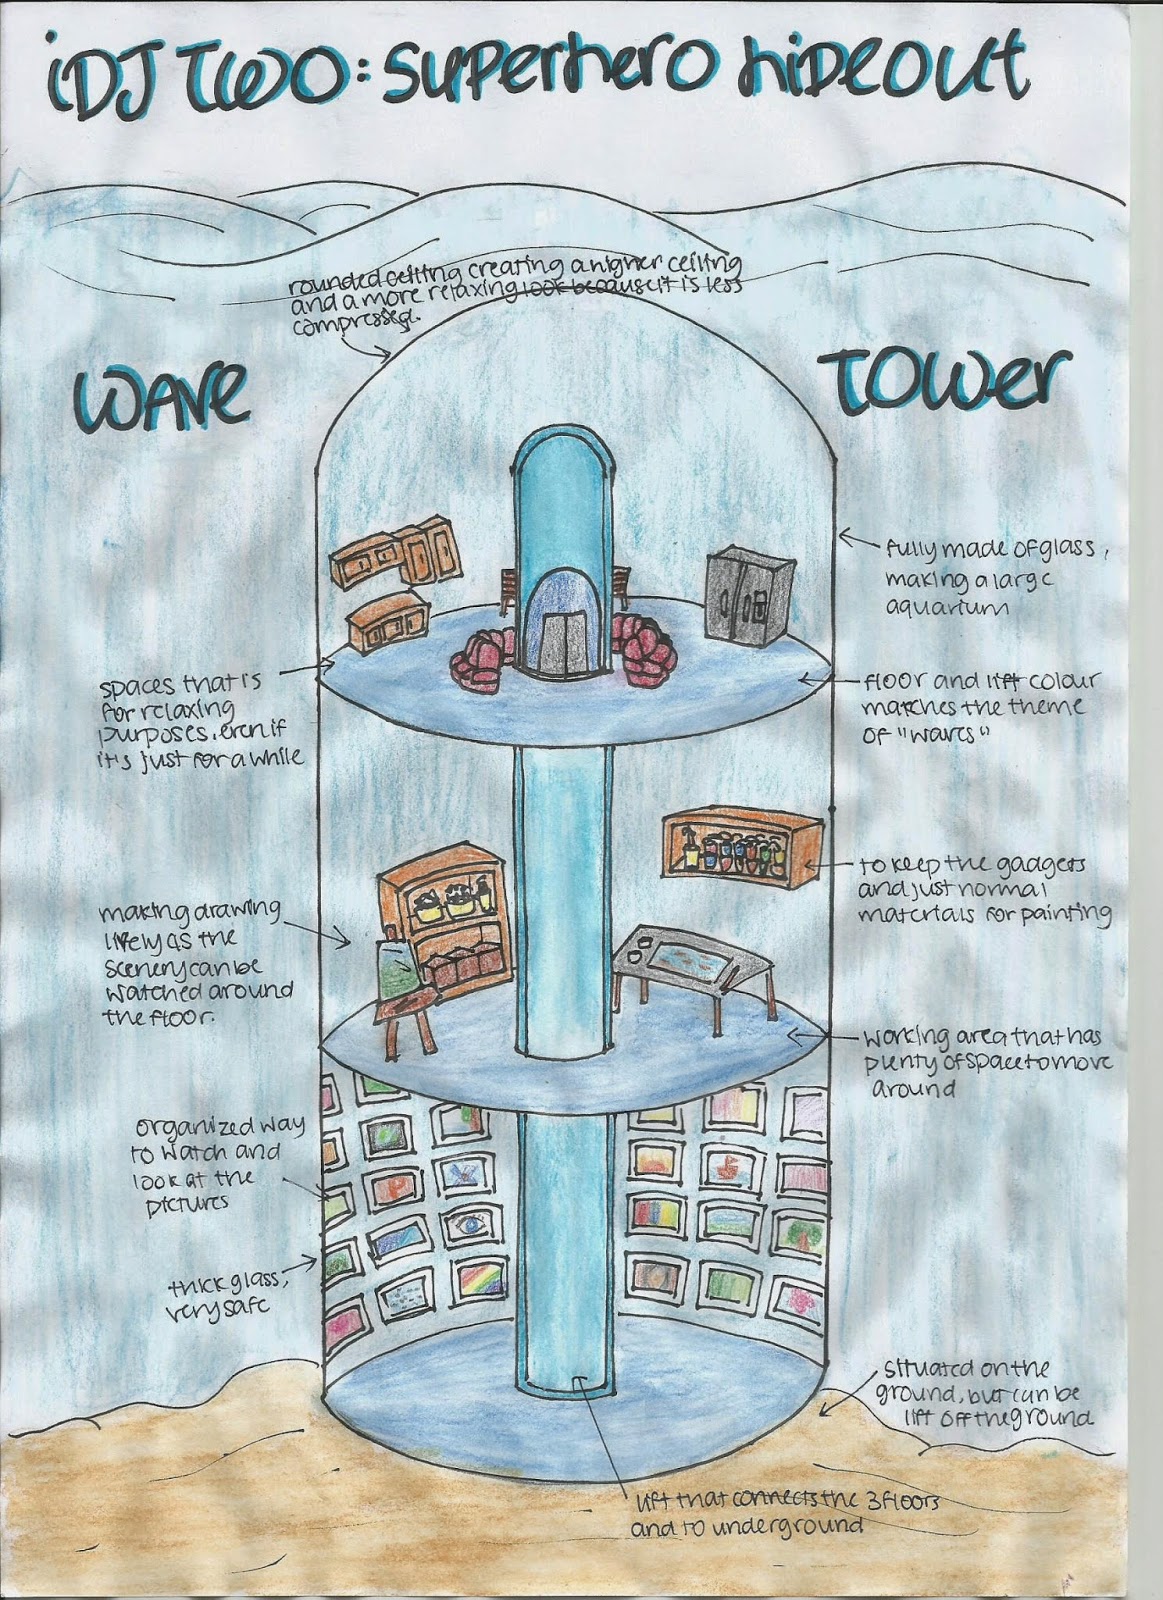 iDJ TWO: superhero hideout
rounded ceiling creating a higher ceiling
and a more relaxing look because it is less
compressed.
WAVE
TOWER
fully made of glass,
making a large
aquarium
spaces that is
for relaxing
purposes, even if
it's just for a while
floor and lift colour
matches the theme
of "waves"
to keep the gadgets
and just normal
materials for painting
making drawing
lively as the
scenery can be
watched around
the floor.
working area that has
plenty of space to move
around
organized way
to watch and
look at the
pictures
thick glass,
very safe
situated on the
ground, but can be
lift off the ground
lift that connects the 3 floors
and to underground